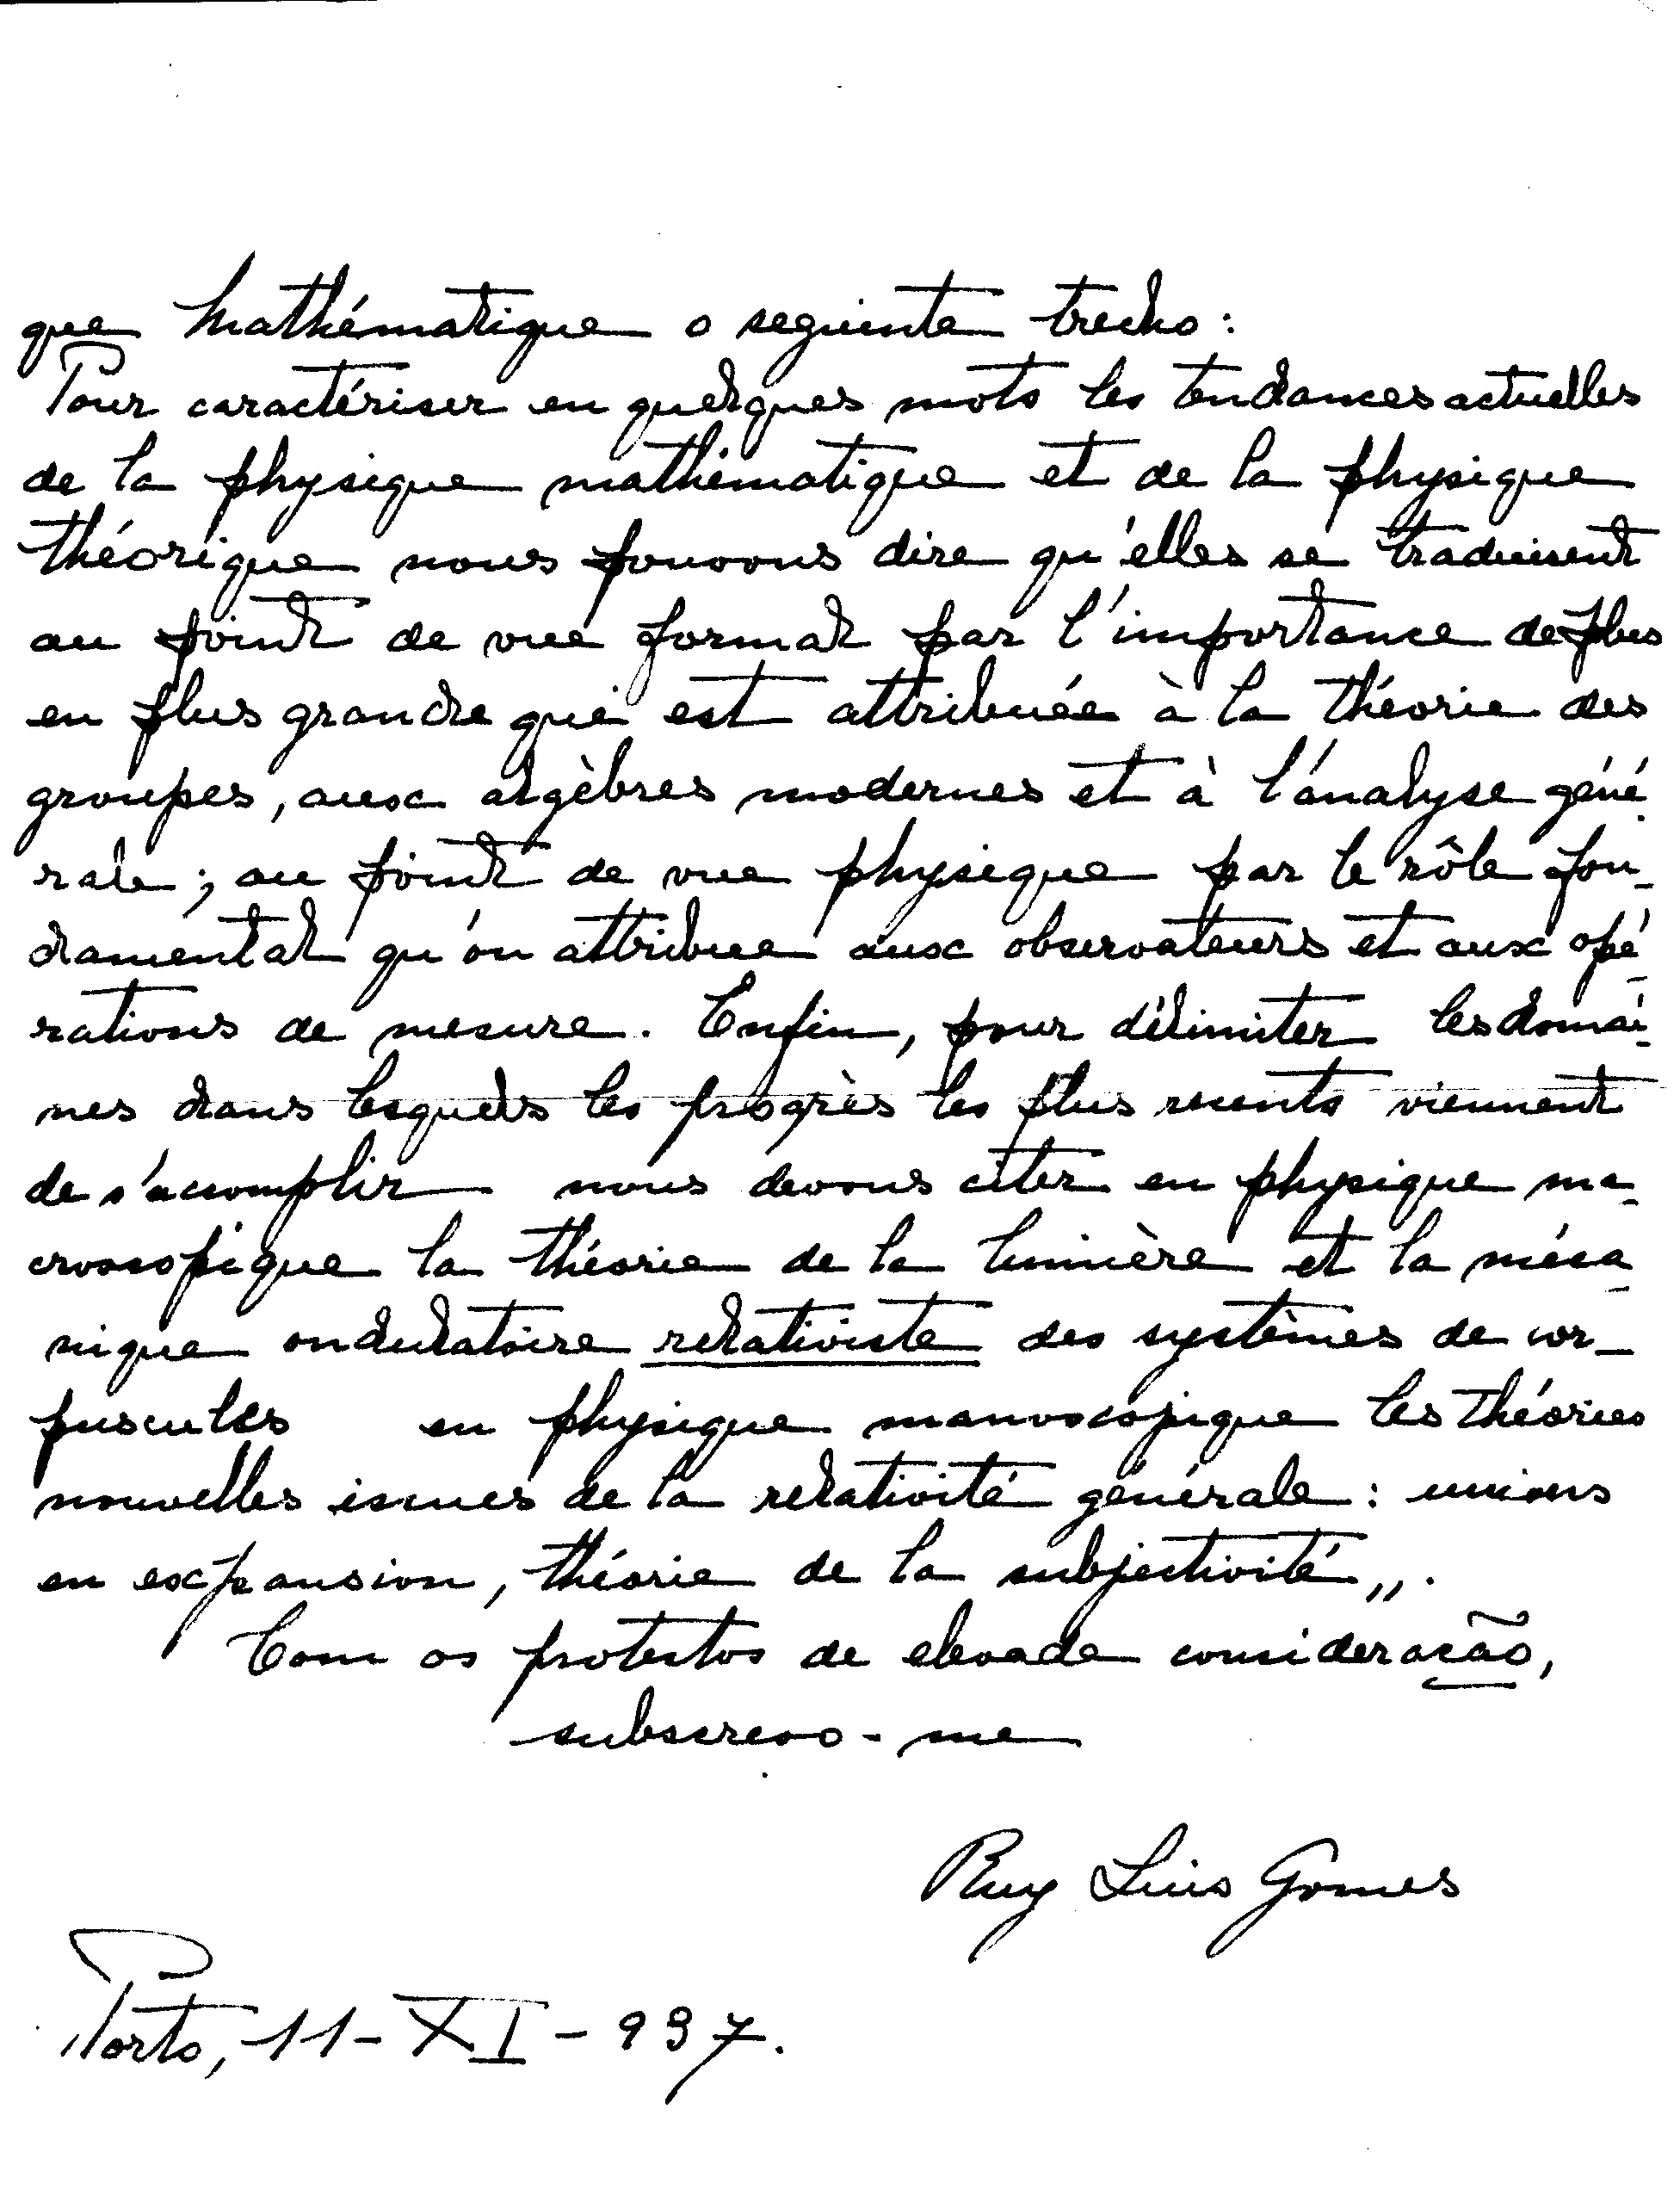 que Mathématique o seguinte trecho:
Pour caractériser en quelques mots les tendances actuelles
de la physique mathématique et de la physique
théorique nous pouvons dire qu'elles se traduisent
au point de vue formal par l'importance de plus
en plus grande qui est attribuée à la théorie des
groupes, aux algèbres modernes et à l'analyse géné-
rale; au point de vue physique par le rôle fon-
damental qu'on attribue aux observateurs et aux opé-
rations de mesure. Enfin, pour délimiter les domai-
nes dans lesquels les progrès les plus recents viennent
de s'accomplir nous devons citer en physique mi-
croscopique la théorie de la lumière et la méca-
nique ondulatoire relativiste des systèmes de cor-
puscules en physique macroscopique les théories
nouvelles issues de la relativité générale: univers
en expansion, théorie de la subjectivité„.
Com os protestos de elevada consideração,
subscrevo-me
Ruy Luis Gomes
Porto, 11-XI-937.